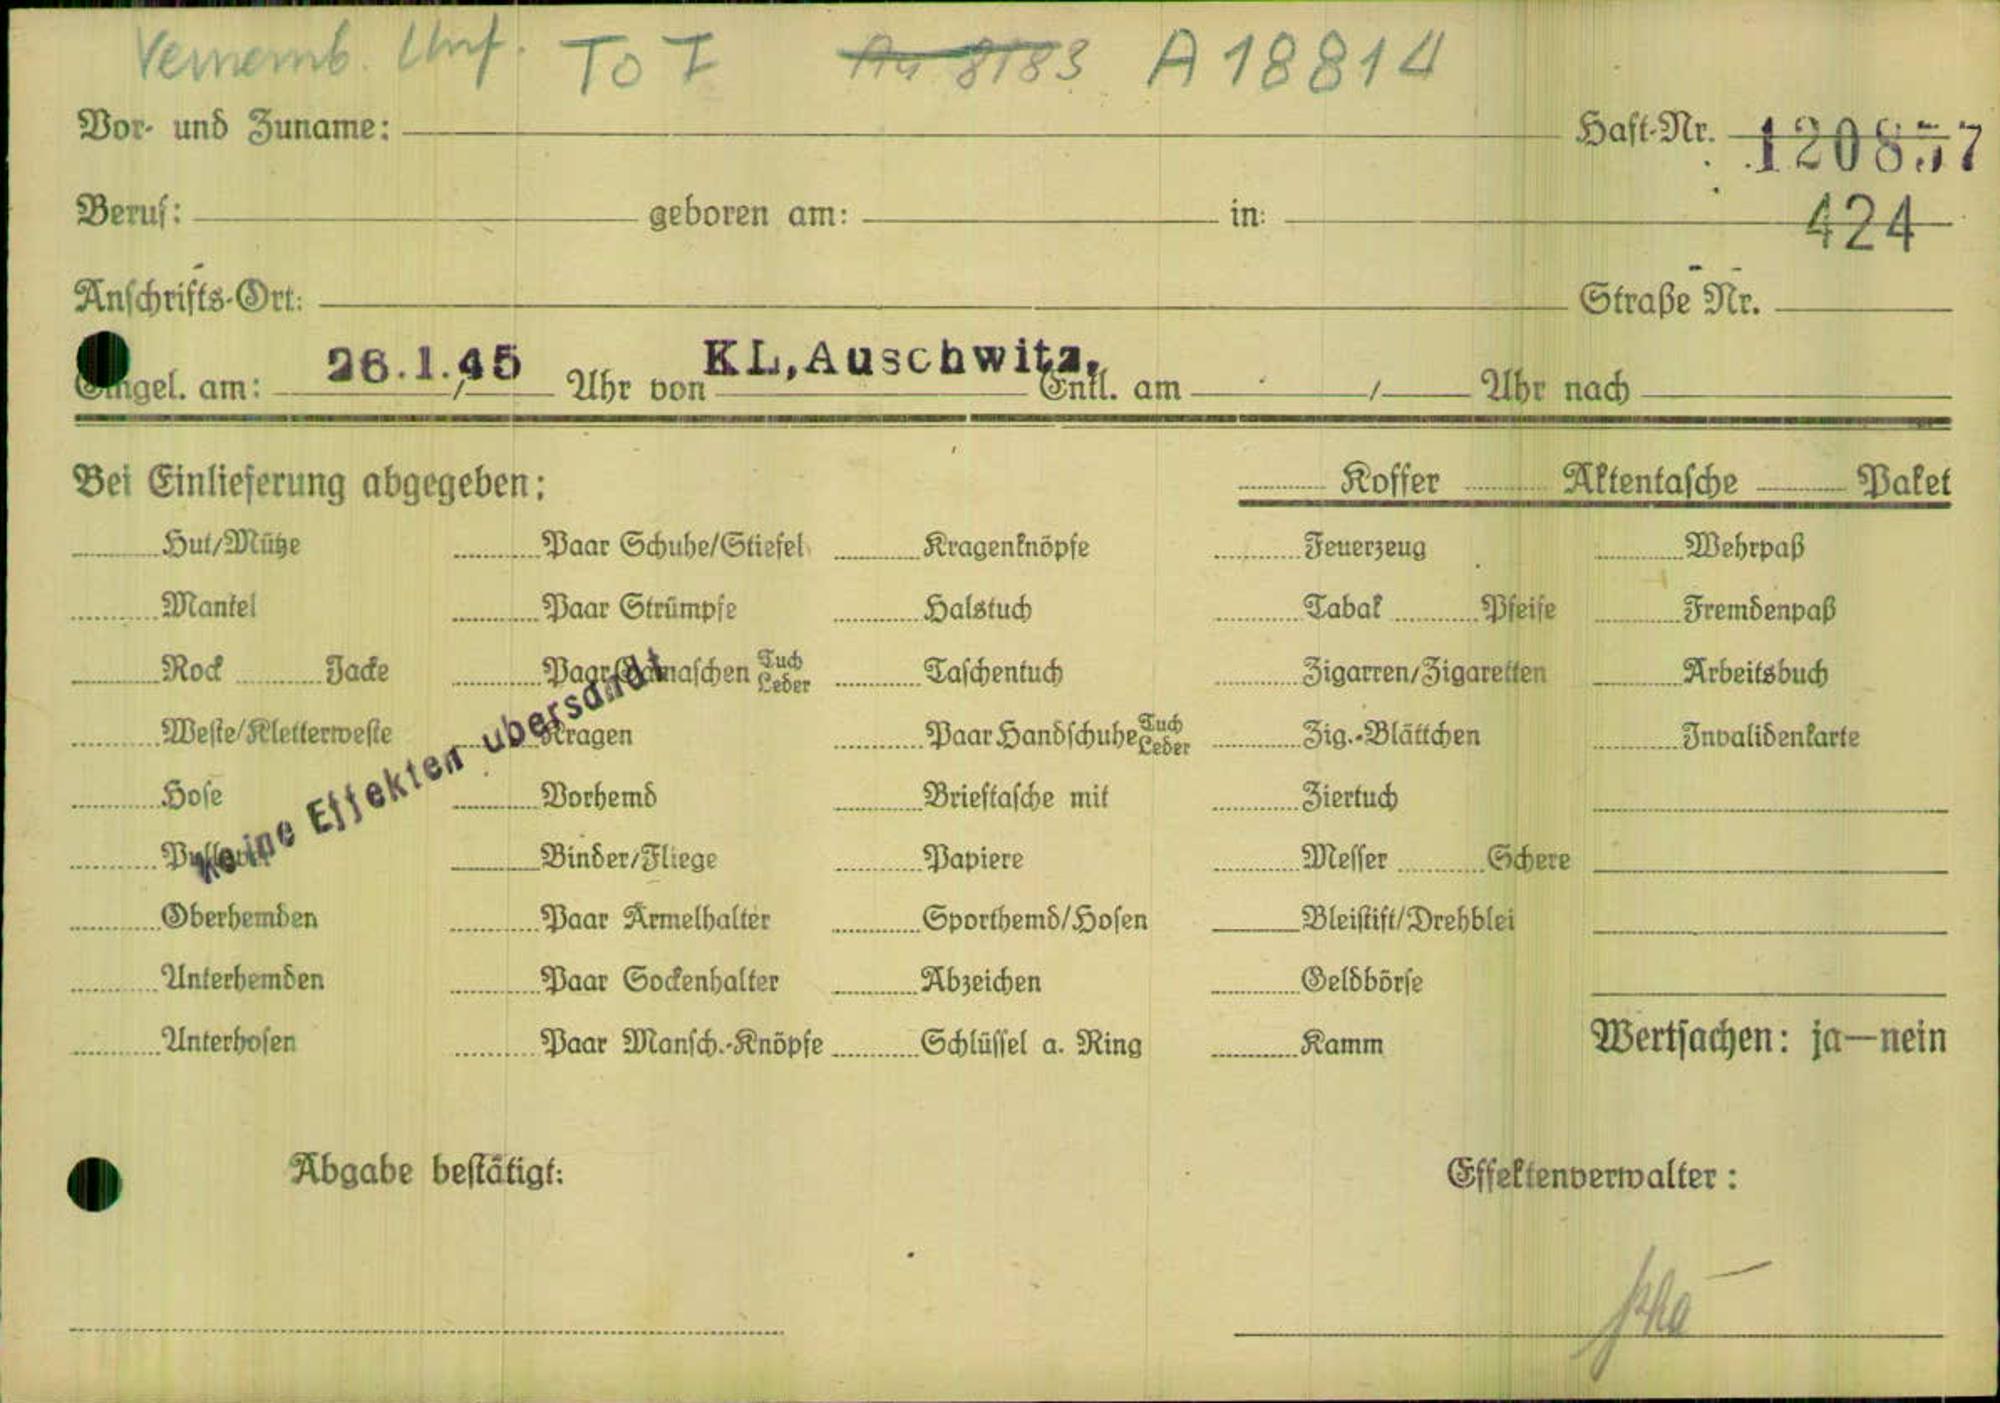 Tot A 18814
Vor- und Zuname: Haft-Nr. 120857
Beruf: geboren am: in: 424
Anschrifts-Ort: Straße Nr.
Eingel. am: 26.1.45 / Uhr von KL, Auschwitz, Entl. am / Uhr nach
Bei Einlieferung abgegeben: Koffer Aktentasche Paket
Hut/Mütze Paar Schuhe/Stiefel Kragenknöpfe Feuerzeug Wehrpaß
Mantel Paar Strümpfe Halstuch Tabak Pfeife Fremdenpaß
Rock Jacke Paar Gamaschen Tuch Leder Taschentuch Zigarren/Zigaretten Arbeitsbuch
Weste/Kletterweste Kragen Paar Handschuhe Tuch Leder Zig.-Blättchen Invalidenkarte
Keine Effekten übersandt
Hose Vorhemd Brieftasche mit Ziertuch
Pullover Binder/Fliege Papiere Messer Schere
Oberhemden Paar Ärmelhalter Sporthemd/Hosen Bleistift/Drehblei
Unterhemden Paar Sockenhalter Abzeichen Geldbörse
Unterhosen Paar Mansch.-Knöpfe Schlüssel a. Ring Kamm Wertsachen: ja—nein
Abgabe bestätigt: Effektenverwalter: